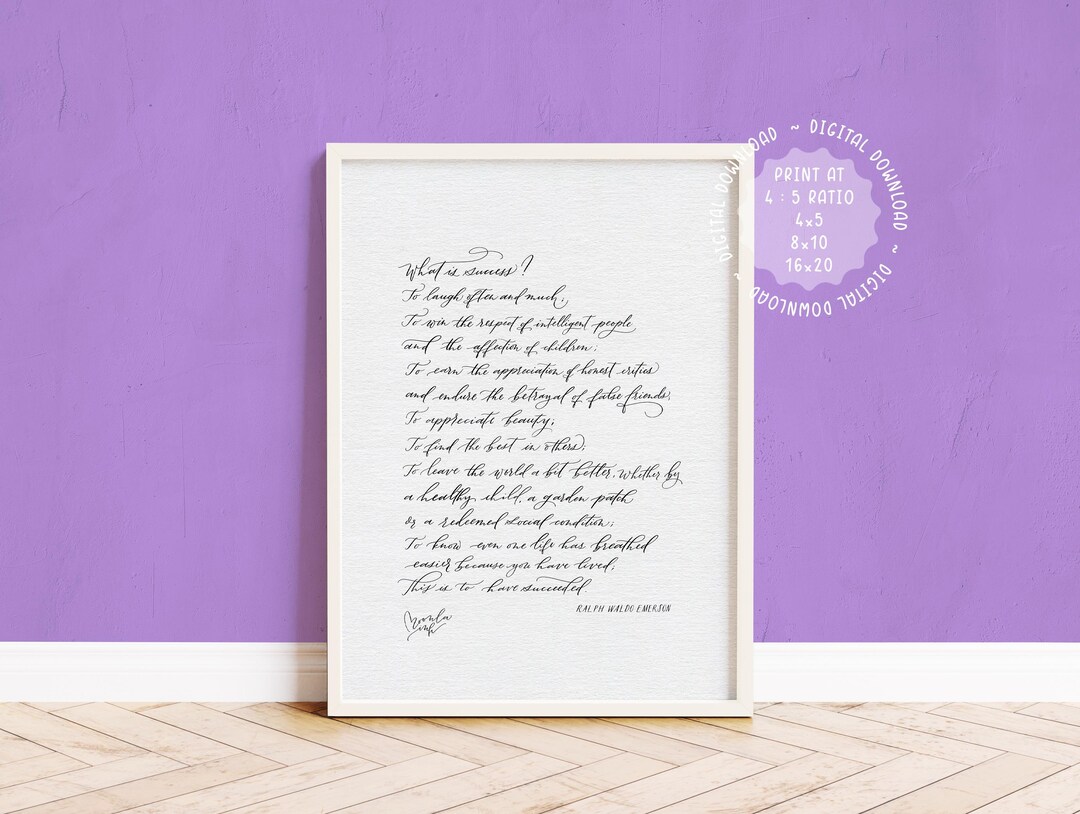 What is success?
To laugh often and much;
To win the respect of intelligent people
and the affection of children;
To earn the appreciation of honest critics
and endure the betrayal of false friends;
To appreciate beauty;
To find the best in others;
To leave the world a bit better, whether by
a healthy child, a garden patch
or a redeemed social condition;
To know even one life has breathed
easier because you have lived;
This is to have succeeded.
RALPH WALDO EMERSON
ink
PRINT AT
4 : 5 RATIO
4x5
8x10
16x20
DIGITAL DOWNLOAD ~ DIGITAL DOWNLOAD ~ DIGITAL DOWNLOAD ~